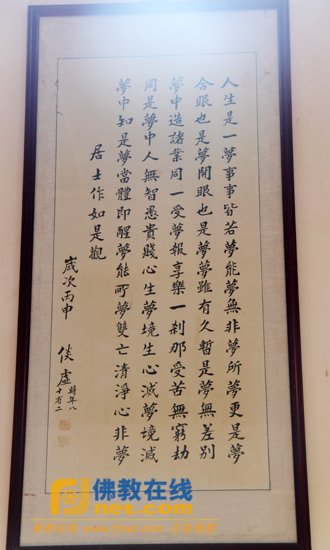 人生是一夢事事皆若夢能夢無非夢所夢更是夢
合眼也是夢開眼也是夢夢雖有久暫是夢無差別
夢中造諸業同一受夢報享樂一剎那受苦無窮劫
同是夢中人無智愚貴賤心生夢境生心滅夢境滅
夢中知是夢當體即醒夢能所夢雙亡清淨心非夢
居士作如是觀
歲次丙申 倓虛 時年八十有二
佛教在线
net.com